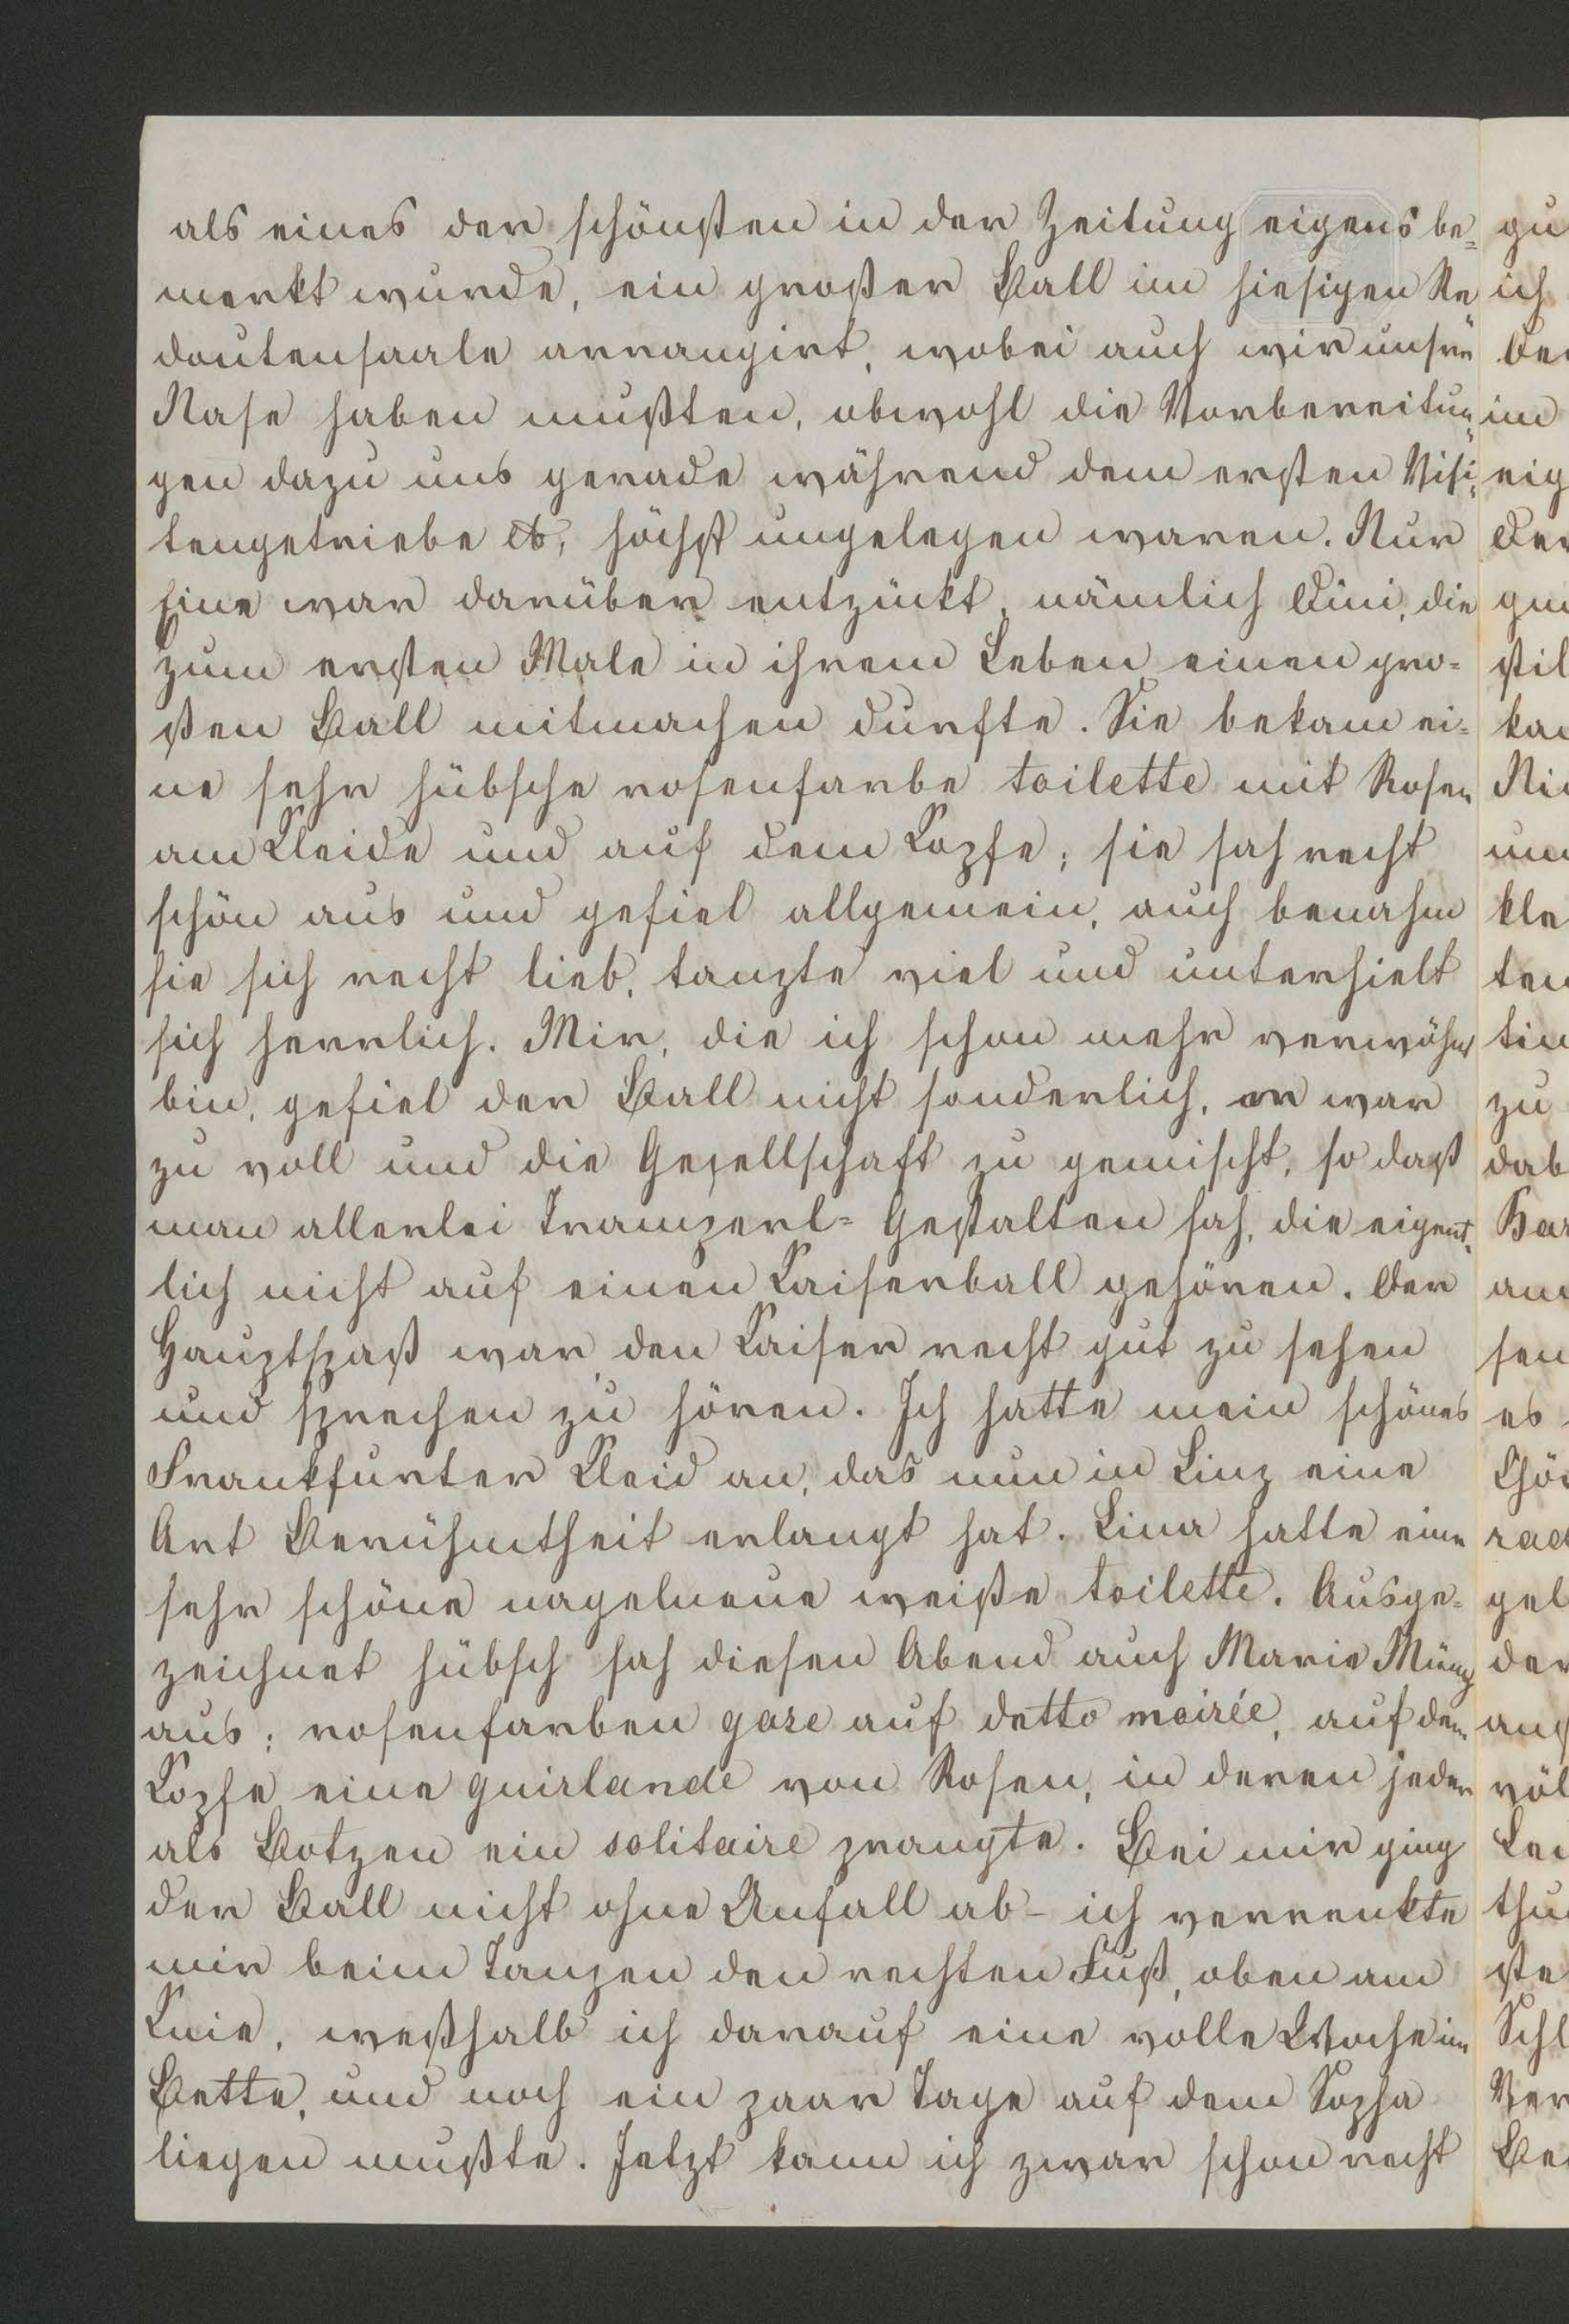 als eines der schönsten in der Zeitung eigens be=
merkt wurde, ein großer Ball im hiesigen Re
doutensaale arrangirt, wobei auch wir unsre
Nase haben mußten, obwohl die Vorbereitun=
gen dazu uns gerade während dem ersten Visi=
tengetriebe etc, höchst ungelegen waren. Nur
Eine war darüber entzückt, nämlich Dini, die
zum ersten Male in ihrem Leben einen gro=
ßen Ball mitmachen durfte. Sie bekam ei=
ne sehr hübsche rosenfarbe toilette mit Rosen
am Kleide und auf dem Kopfe; sie sah recht
schön aus und gefiel allgemein, auch benahm
sie sich recht lieb, tanzte viel und unterhielt
sich herrlich. Mir, die ich schon mehr verwöhnt
bin, gefiel der Ball nicht sonderlich, er war
zu voll und die Gesellschaft zu gemischt, so daß
man allerlei Tramperl=Gestalten sah, die eigent=
lich nicht auf einen Kaiserball gehören. Der
Hauptspaß war, den Kaiser recht gut zu sehen
und sprechen zu hören. Ich hatte mein schönes
Frankfurter Kleid an, das nun in Linz eine
Art Berühmtheit erlangt hat. Lina hatte eine
sehr schöne nagelneue weiße toilette. Ausge=
zeichnet hübsch sah diesen Abend auch Marie Münz
aus; rosenfarben gaze auf detto moirée, auf dem
Kopfe eine guirlande von Rosen, in deren jeder
als Botzen ein solitaire prangte. Bei mir ging
der Ball nicht ohne Unfall ab - ich verrenkte
mir beim Tanzen den rechten Fuß, oben am
Knie, weßhalb ich darauf eine volle Woche im
Bette, und noch ein paar Tage auf dem Sopha
liegen mußte. Jetzt kann ich zwar schon recht